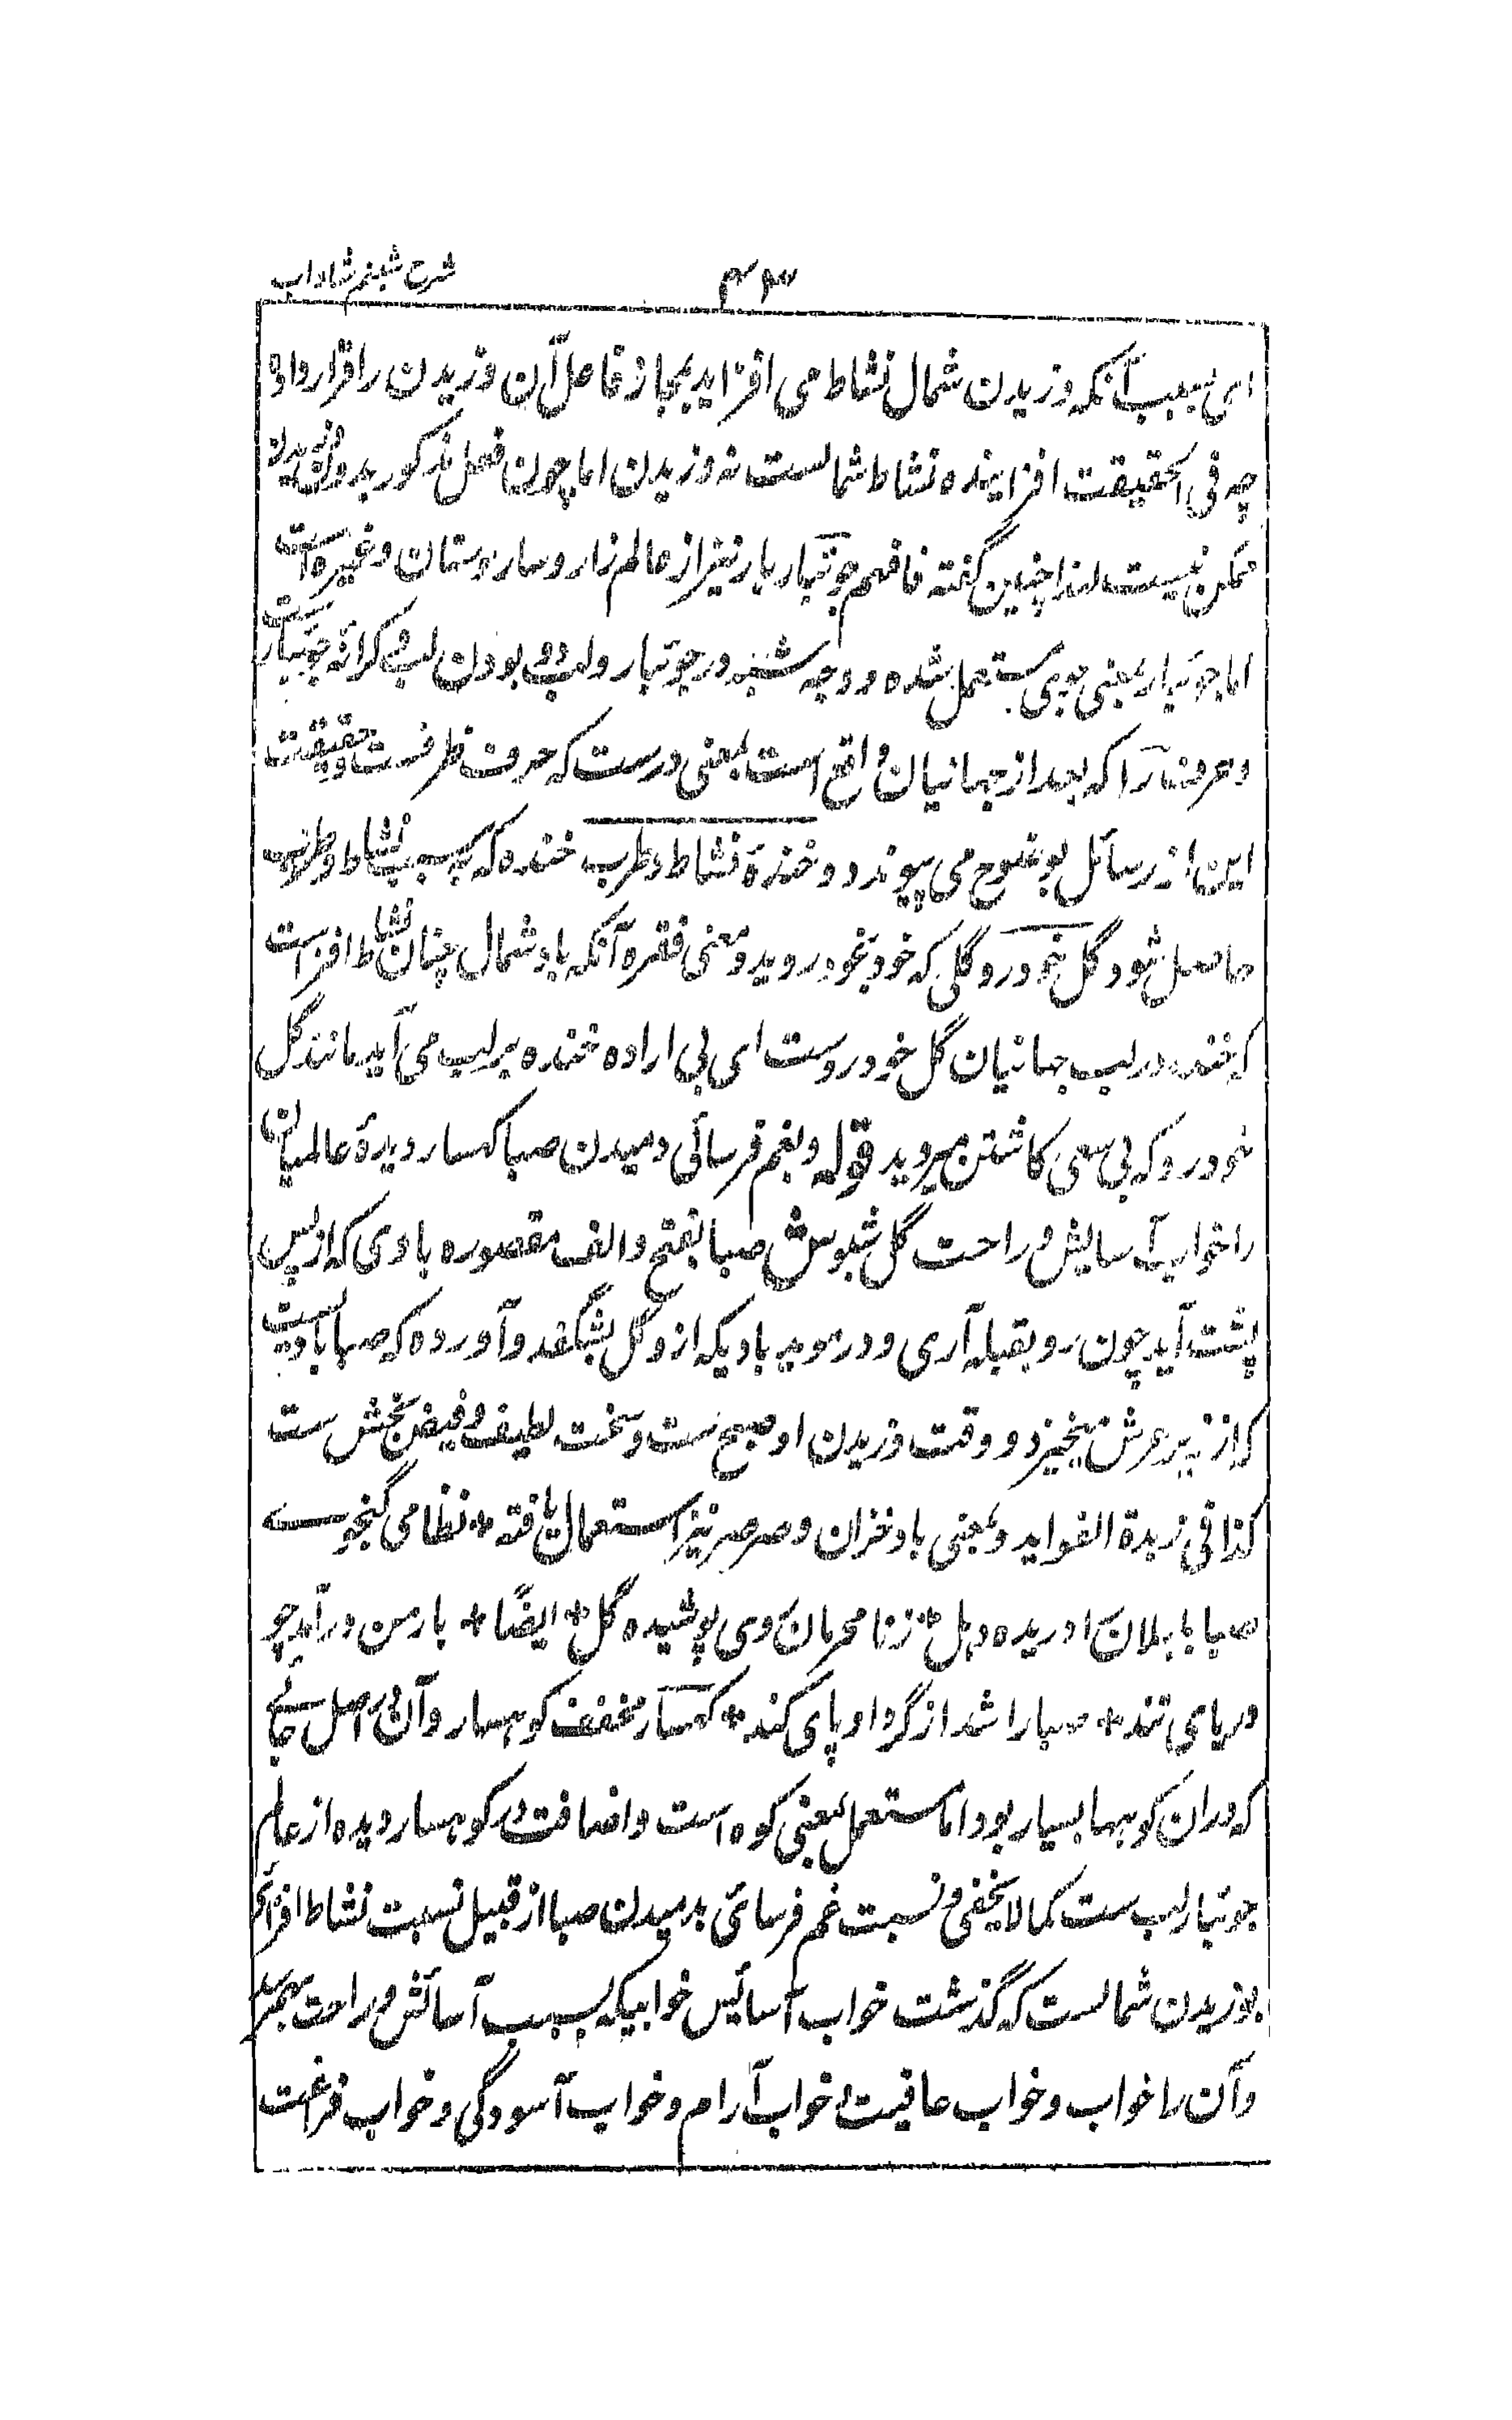 شرح شبنم شاداب
۴۳
ای بسبب آنکه وزیدن شمال نشاط می افزاید بمجاز فاعل آن وزیدن را قرار داده
چه فی الحقیقت افزاینده نشاط شمالست نه وزیدن اما چون فعل مذکور بدون وزیدن
ممکن نیست لهذا چنین گفته فافهم جوئبار بار نیز از عالم زار و سار و ستان و غیره است
اما جوئبار بمعنی جوی مستعمل شده و وجه شبه در جوئبار و لب بودن لب و کرانه جوئبارست
و حرف را که بعد از جهانیان واقع است بمعنی درست که حرف ظرفست و حقیقت
این از رسائل بوضوح می پیوندد و خندۀ نشاط و طرب خنده که بسبب نشاط و طرب
حاصل شود گل خودرو گلی که خود بخود روید و معنی فقره آنکه باد شمال چنان نشاط افزاست
که خنده در لب جهانیان گل خودروست ای بی اراده خنده بر لب می آید مانند گل
خودرو که بی سعی کاشتن میروید قوله و بغم فرسائی دمیدن صبا کهسار دیدۀ عالمیان
را خواب آسایش و راحت گل شبوش صبا بفتح و الف مقصوره بادی که از پس
پشت آید چون رو بقبله آری و در موید بادیکه ازو گل بشگفد و آورده که صبا بادیست
که از زیر عرش میخیزد و وقت وزیدن او صبح ست و سخت لطیف و فیض بخش ست
کذا فی زبدة الفواید و بمعنی باد خزان و صرصر نیز استعمال یافته * نظامی گنجوی
صبا با بلان دریده دهل * زنا محرمان روی پوشیده گل * ایضًا * بارمن درآمد چو
دریای تند * صبا را شد از گرد او پای کند * کهسار مخفف کوهسار و آن در اصل جائے
که دران کوهها بسیار بود اما مستعمل بمعنی کوه است و اضافت در کوهسار دیده از عالم
جوئبار لب ست کما لا یخفی و نسبت غم فرسائی بدمیدن صبا از قبیل نسبت نشاط افزائی
بوزیدن شمالست که گذشت خواب آسائیس خوابیکه بسبب آسائش و راحت بهم رسد
و آن را خواب و خواب عافیت و خواب آرام و خواب آسودگی و خواب فراغت